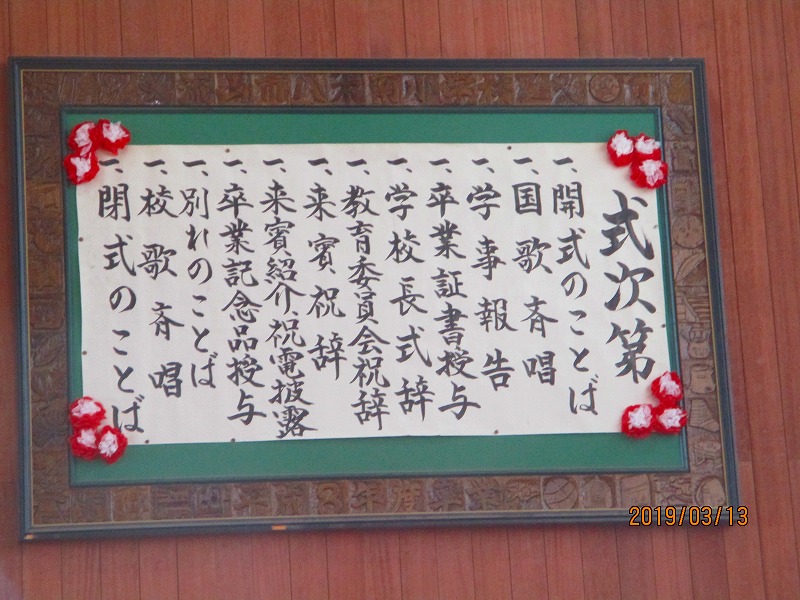 式次第
一、開式のことば
一、国歌斉唱
一、学事報告
一、卒業証書授与
一、学校長式辞
一、教育委員会祝辞
一、来賓祝辞
一、来賓紹介、祝電披露
一、卒業記念品授与
一、別れのことば
一、校歌斉唱
一、閉式のことば
2019/03/13